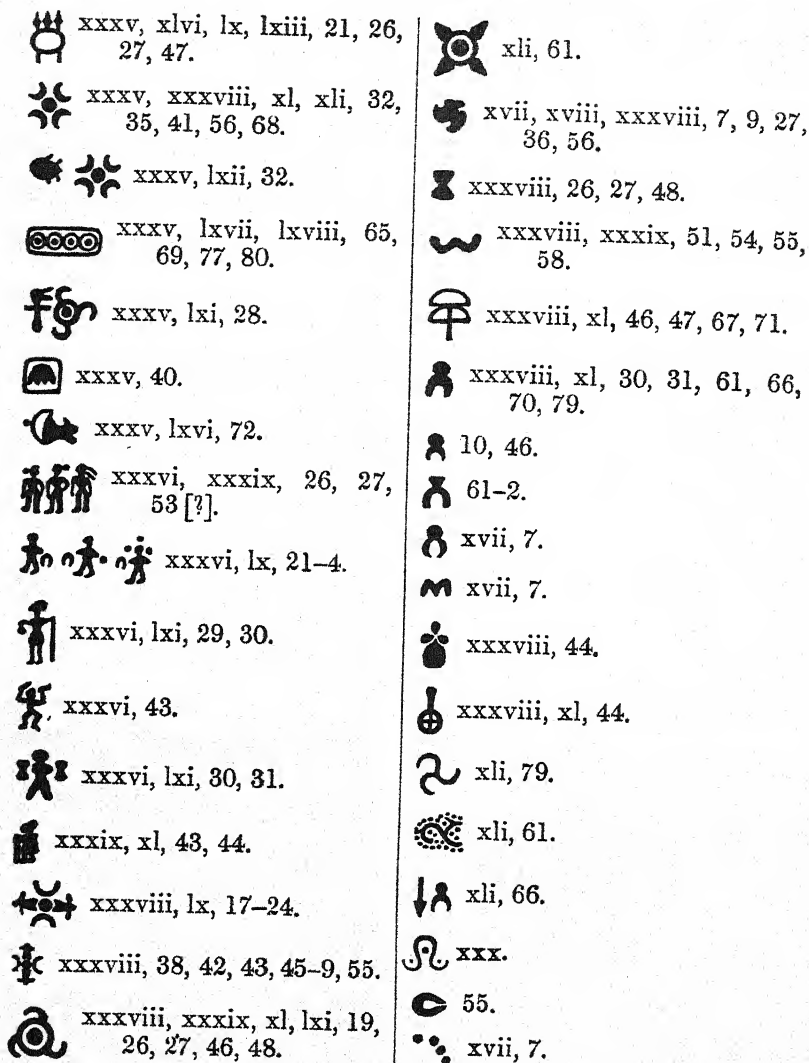 xxxv, xlvi, lx, lxiii, 21, 26,
27, 47.
xxxv, xxxviii, xl, xli, 32,
35, 41, 56, 68.
xxxv, lxii, 32.
xxxv, lxvii, lxviii, 65,
69, 77, 80.
xxxv, lxi, 28.
xxxv, 40.
xxxv, lxvi, 72.
xxxvi, xxxix, 26, 27,
53 [?].
xxxvi, lx, 21–4.
xxxvi, lxi, 29, 30.
xxxvi, 43.
xxxvi, lxi, 30, 31.
xxxix, xl, 43, 44.
xxxviii, lx, 17–24.
xxxviii, 38, 42, 43, 45–9, 55.
xxxviii, xxxix, xl, lxi, 19,
26, 27, 46, 48.
xli, 61.
xvii, xviii, xxxviii, 7, 9, 27,
36, 56.
xxxviii, 26, 27, 48.
xxxviii, xxxix, 51, 54, 55,
58.
xxxviii, xl, 46, 47, 67, 71.
xxxviii, xl, 30, 31, 61, 66,
70, 79.
10, 46.
61–2.
xvii, 7.
xvii, 7.
xxxviii, 44.
xxxviii, xl, 44.
xli, 79.
xli, 61.
xli, 66.
xxx.
55.
xvii, 7.